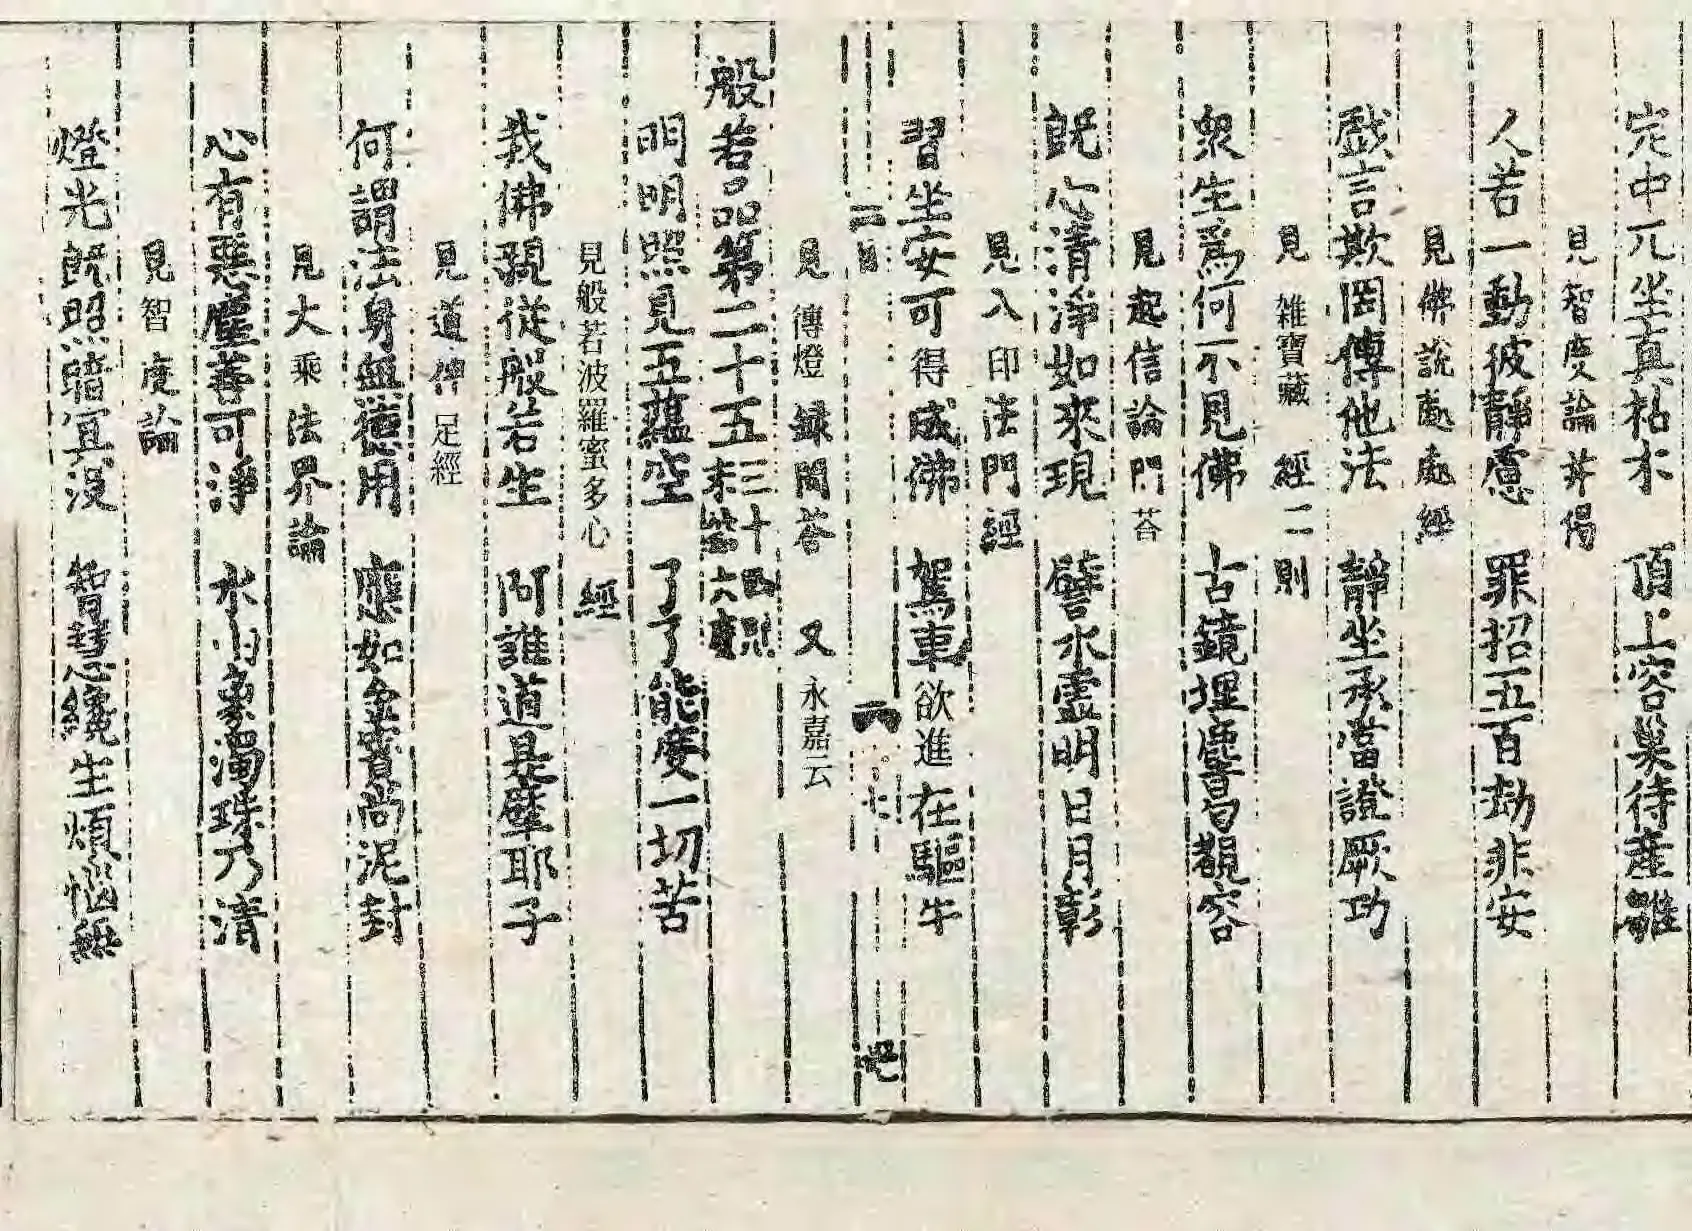 定中兀坐真枯木　頂上容巢待產雛
見智度論并偈
人若一動彼靜慮　罪招五百劫非安
見佛說處處經
戲言欺罔傳他法　靜坐承當證厥功
見雜寶藏經二則
衆生爲何不見佛　古鏡埋塵昬覩容
見起信論門荅
既心清淨如來現　譬水虛明日月彰
見入印法門經
習坐安可得成佛　駕車欲進在驅牛
二百 六
見傳燈録問荅　又永嘉云
般若品第二十五 三十四則
明明照見五蘊空　了了能度一切苦
見般若波羅蜜多心經
我佛親從般若生　阿誰道是擘耶子
見道俾足經
何謂法身無德用　應如金寶尚泥封
見大乘法界論
心有惡塵善可淨　水陷濁珠乃清
見智度論
燈光既照暗冥没　智慧纔生煩惱無